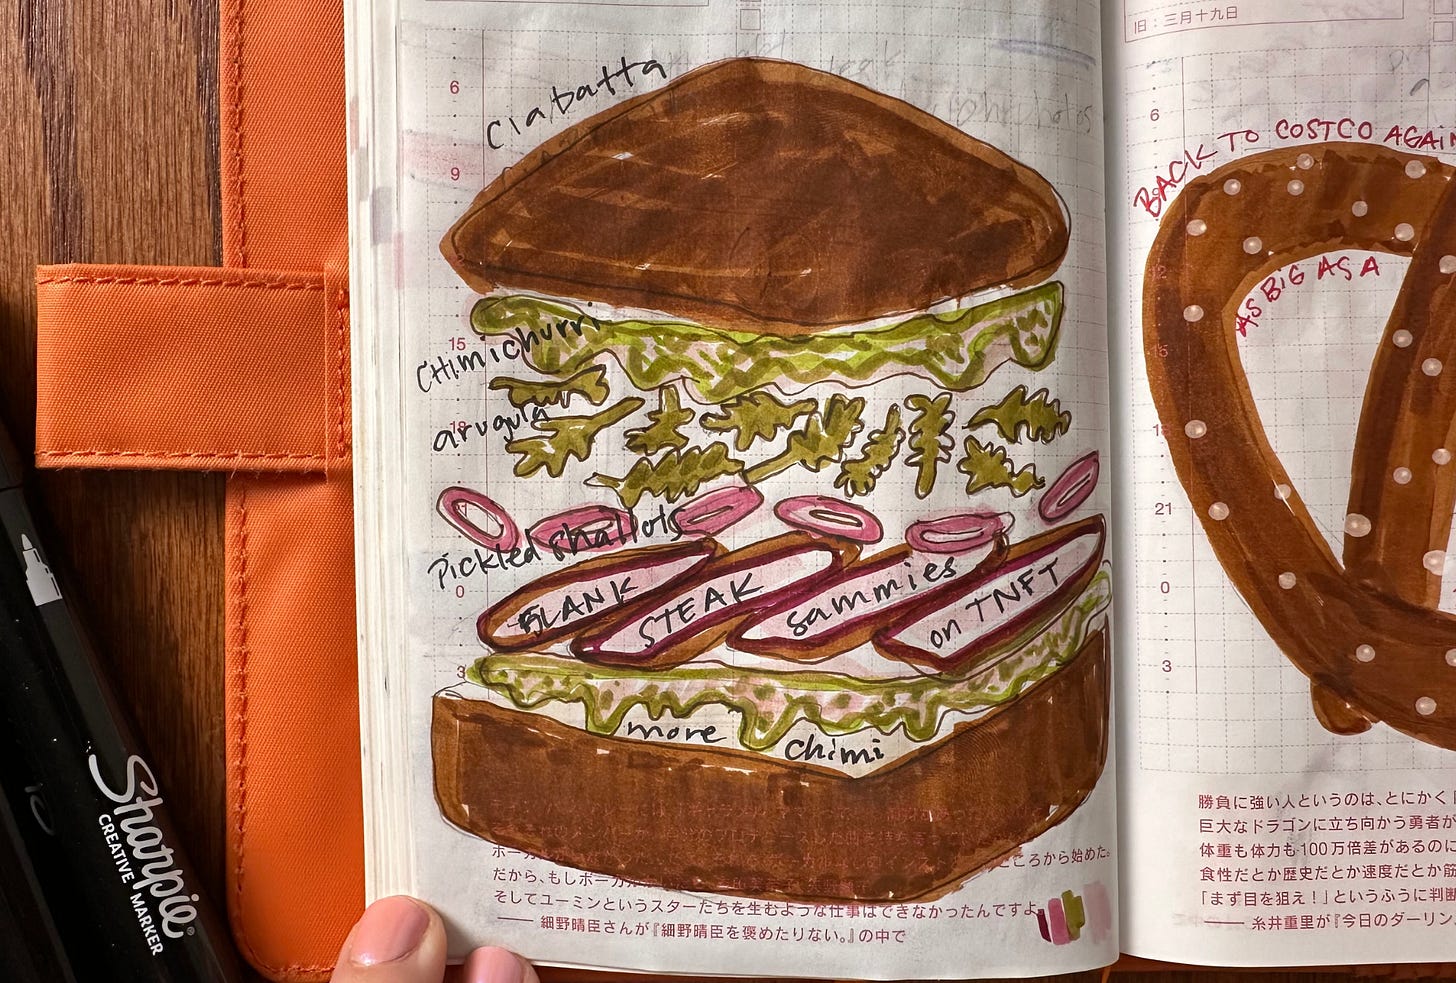 6
9
15
21
0
3
ciabatta
CHimichurri
arugula
pickled shallots
FLANK STEAK sammies on TNFT
more chimi
ころから始めた。
そしてユーミンというスターたちを生むような仕事はできなかったんですよ。
—— 細野晴臣さんが『細野晴臣を褒めたりない。』の中で
旧：三月十九日
6
BACK TO COSTCO AGAIN
AS BIG AS A
12
15
18
21
0
3
勝負に強い人というのは、とにかく
巨大なドラゴンに立ち向かう勇者が
体重も体力も100万倍差があるのに
食性だとか歴史だとか速度だとか筋
「まず目を狙え！」というふうに判断
—— 糸井重里が『今日のダーリン
Sharpie®
CREATIVE MARKER